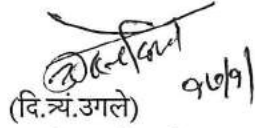 १७/१
(दि.त्र्यं.उगले)